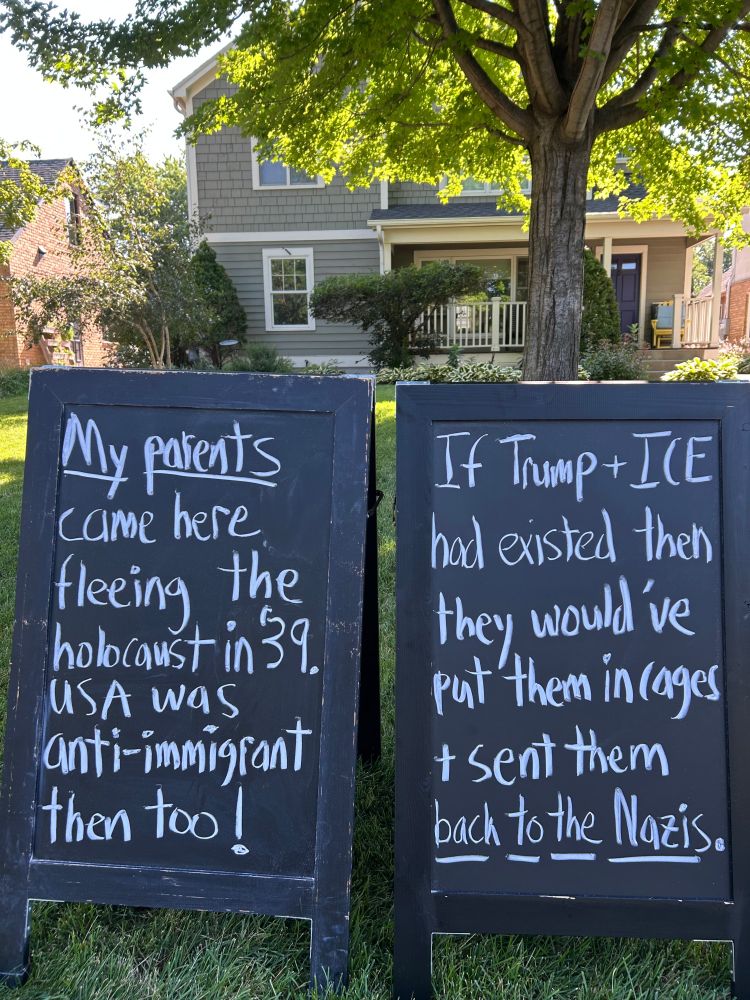 My parents
came here
fleeing the
holocaust in '39.
USA was
anti-immigrant
then too!
If Trump + ICE
had existed then
they would've
put them in cages
+ sent them
back to the Nazis.